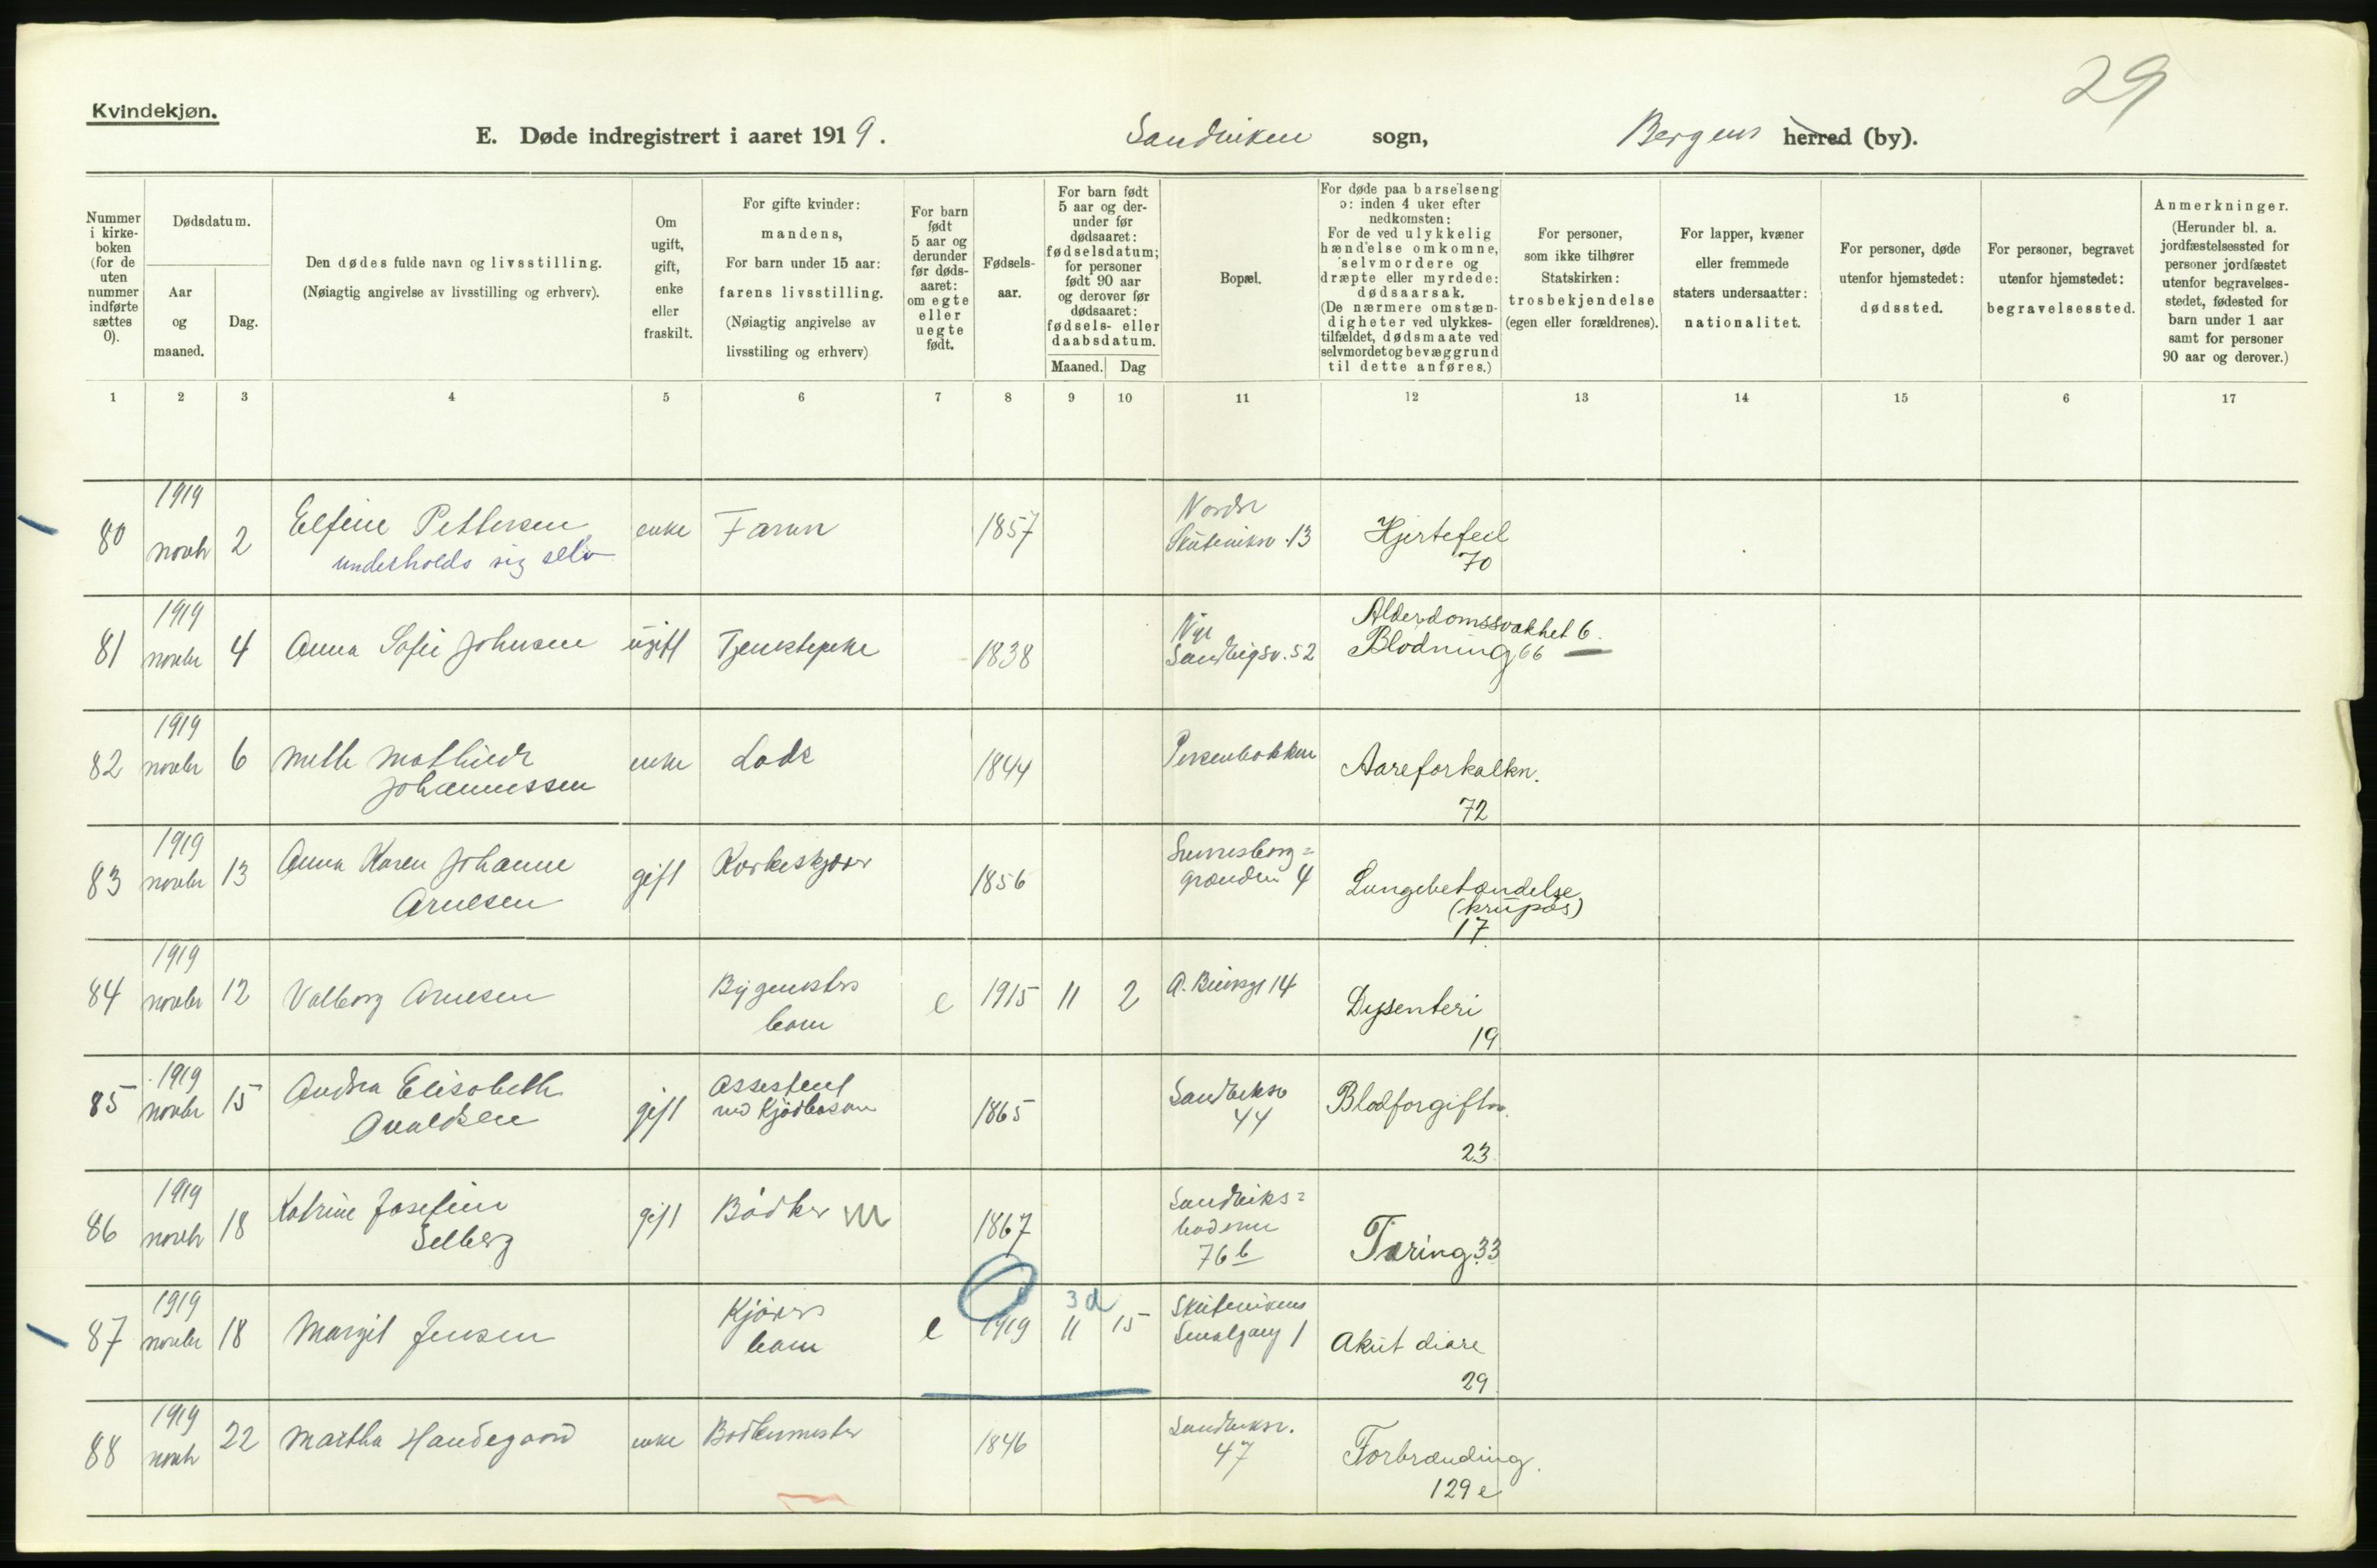 29
Kvindekjøn.
E. Døde indregistrert i aaret 1919. Sandviken sogn, Bergens herred (by).
Nummer i kirke-boken (for de uten nummer indførte sættes 0).
Dødsdatum.
Aar og maaned.
Dag.
Den dødes fulde navn og livsstilling.
(Nøiagtig angivelse av livsstilling og erhverv).
Om ugift, gift, enke eller fraskilt.
For gifte kvinder: mandens,
For barn under 15 aar: farens livsstilling.
(Nøiagtig angivelse av livsstiling og erhverv)
For barn født 5 aar og derunder før døds-aaret: om egte eller uegte født.
Fødsels-aar.
For barn født 5 aar og der-under før dødsaaret: fødselsdatum; for personer født 90 aar og derover før dødsaaret: fødsels- eller daabsdatum.
Maaned. Dag
Bopæl.
For døde paa barselseng ɔ: inden 4 uker efter nedkomsten:
For de ved ulykkelig hændelse omkomne, selvmordere og dræpte eller myrdede: dødsaarsak.
(De nærmere omstæn-digheter ved ulykkes-tilfældet, dødsmaate ved selvmordet og bevæggrund til dette anføres.)
For personer, som ikke tilhører Statskirken: trosbekjendelse (egen eller forældrenes).
For lapper, kvæner eller fremmede staters undersaatter: nationalitet.
For personer, døde utenfor hjemstedet: dødssted.
For personer, begravet utenfor hjemstedet: begravelsessted.
Anmerkninger.
(Herunder bl. a. jordfæstelsessted for personer jordfæstet utenfor begravelses-stedet, fødested for barn under 1 aar samt for personer 90 aar og derover.)
1 2 3 4 5 6 7 8 9 10 11 12 13 14 15 6 17
1919
80 novbr 2 Elfine Pettersen enke 1857 Nordre Skuteviksv 13 Hjertefeil
underholdt sig selv 70
1919 Alderdomssvakhet 6.
81 novbr 4 Anna Sofie Johnsen ugift Tjenestepike 1838 Nye Sandvigsv. 52 Blodning 66
1919
82 novbr 6 Mette Mathilde enke Lods 1844 Aareforkalkn.
Johannessen 72
1919
83 novbr 13 Anna Karen Johanne gift 1856 grænden 4 Lungebetændelse
Arnesen (krupøs)
17
1919
84 novbr 12 Valborg Arnesen barn e 1915 11 2 14 Dysenteri
19
1919
85 novbr 15 Andrea Elisabeth gift Assistent ved 1865 Sandviksv 44 Blodforgiftn.
23
1919
86 novbr 18 Katrine Josefine gift Bödker 1867 Sandviks=boderne 76 b Tæring 33
Selberg
1919 3 d
87 novbr 18 Margit Jensen Kjörers barn e 1919 11 15 Skutevikens Smalgang 1 Akut diare
29
1919
88 novbr 22 Martha Handegaard enke Bödkermester 1846 Sandviksv. 47 Forbrænding.
129 e